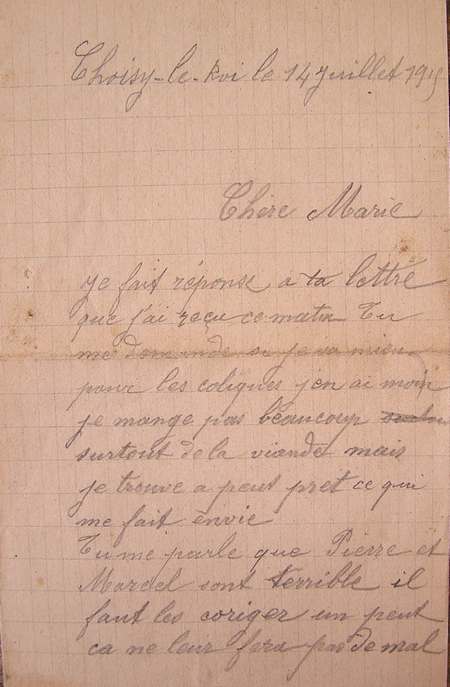 Choisy-le-Roi le 14 Juillet 1915
Chère Marie
Je fait réponse a ta lettre
que j'ai reçu ce matin Tu
me demande si je va mieu
pour les coliques j'en ai moin
je mange pas beaucoup
surtout de la viande mais
je trouve a peut pret ce qui
me fait envie
Tu me parle que Pierre et
Marcel sont terrible il
faut les coriger un peut
ca ne leur fera pas de mal